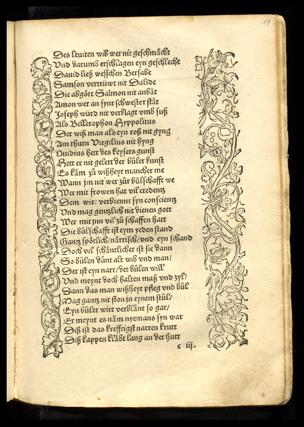 19
Des leuiten wib wer nit geschmächt
Und darumb erschlagen eyn geschlecht
Dauid ließ weschen Bersabe
Samson vertrüwt nit Dalide
Die abgött Salmon nit anbät
Amon wer an synr schwester stät
Joseph würd nit verklagt vmb suß
Als Bellerophon Hyppolitus
Der wiß man als eyn roß nit gyng
Am thurn Virgilius nit hyng
Ouidius hett des keysers gunst
Hett er nit gelert der büler kunst
Es käm zu wißheyt mancher me
Wann im nit wer zür bülschafft we
Wer mit frowen hat vil credentz
Dem wirt verbrennt syn conscientz
Und mag gentzlich nit dienen gott
Wer mit jnn vil zu schaffen hatt
Die bülschafft ist eym yeden stand
Gantz spötlich närrisch und eyn schand
Doch vil schäntlicher ist sie dann
So bülen dünt alt wib vnd man
Der ist eyn narr der bülen will
Und meynt doch halten maß vnd zyl
Dann das man wißheyt pfleg vnd bül
Mag gantz nit ston in eynem stül
Eyn büler wirt verblänt so gar
Er meynt es näm nyemans syn war
Diß ist das krefftigst narren krutt
Diß kappen kläbt lang an der hutt
c iij.